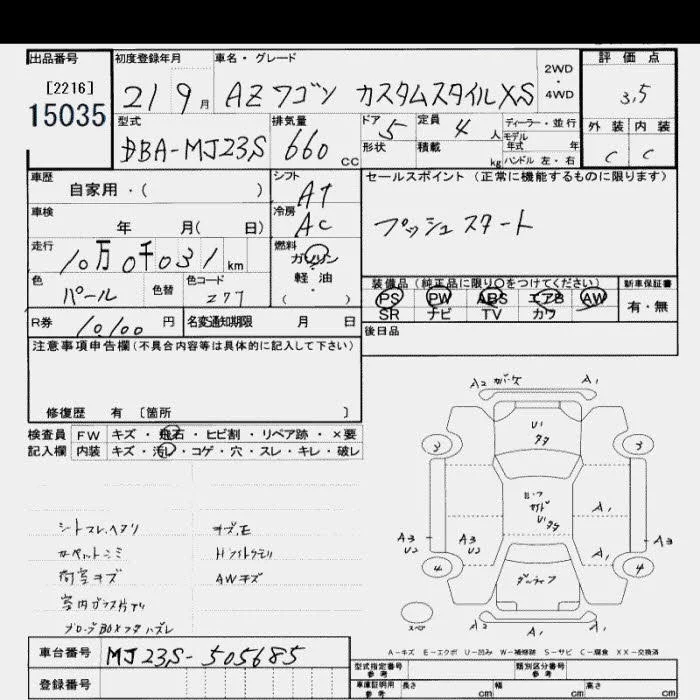 出品番号 初度登録年月 車名・グレード 2WD・4WD 評価点
[2216]
15035
21 9月 AZワゴン カスタムスタイルXS 3.5
型式 排気量 ドア 5 定員 4人 ディーラー・並行 外装 内装
モデル年式 年
DBA-MJ23S 660cc 形状 積載 kg ハンドル 左・右 C C
車歴 シフト AT セールスポイント(正常に機能するものに限ります)
自家用・( )
車検 冷房 AC プッシュスタート
年 月( 日)
走行 燃料 ガソリン
10万0千031km 軽油
( )
色 パール 色替 色コード Z77
装備品(純正品に限り○をつけてください) 新車保証書
PS PW ABS エアB AW 有・無
SR ナビ TV カワ
R券 10100円 名変通知期限 月 日 後日品
注意事項申告欄(不具合内容等は具体的に記入して下さい)
修復歴 有 〔箇所 〕
検査員 FW キズ・飛石・ヒビ割・リペア跡・×要
記入欄 内装 キズ・汚レ・コゲ・穴・スレ・キレ・破レ
シートスレ、ヘタリ キズ、E
カーペットシミ Hライトクモリ
荷室キズ AWキズ
A2 ガリキズ A1
U1
3 3
A1
A3 U2 A3 U2 A3
A1
4 4
スペア A2 A1
A-キズ E-エクボ U-凹み W-補修跡 S-サビ C-腐食 XX-交換済
車台番号 MJ23S-505685
型式指定番号 参考 類別区分番号 参考
登録番号 車庫証明用 参考 長さ cm 幅 cm 高さ cm